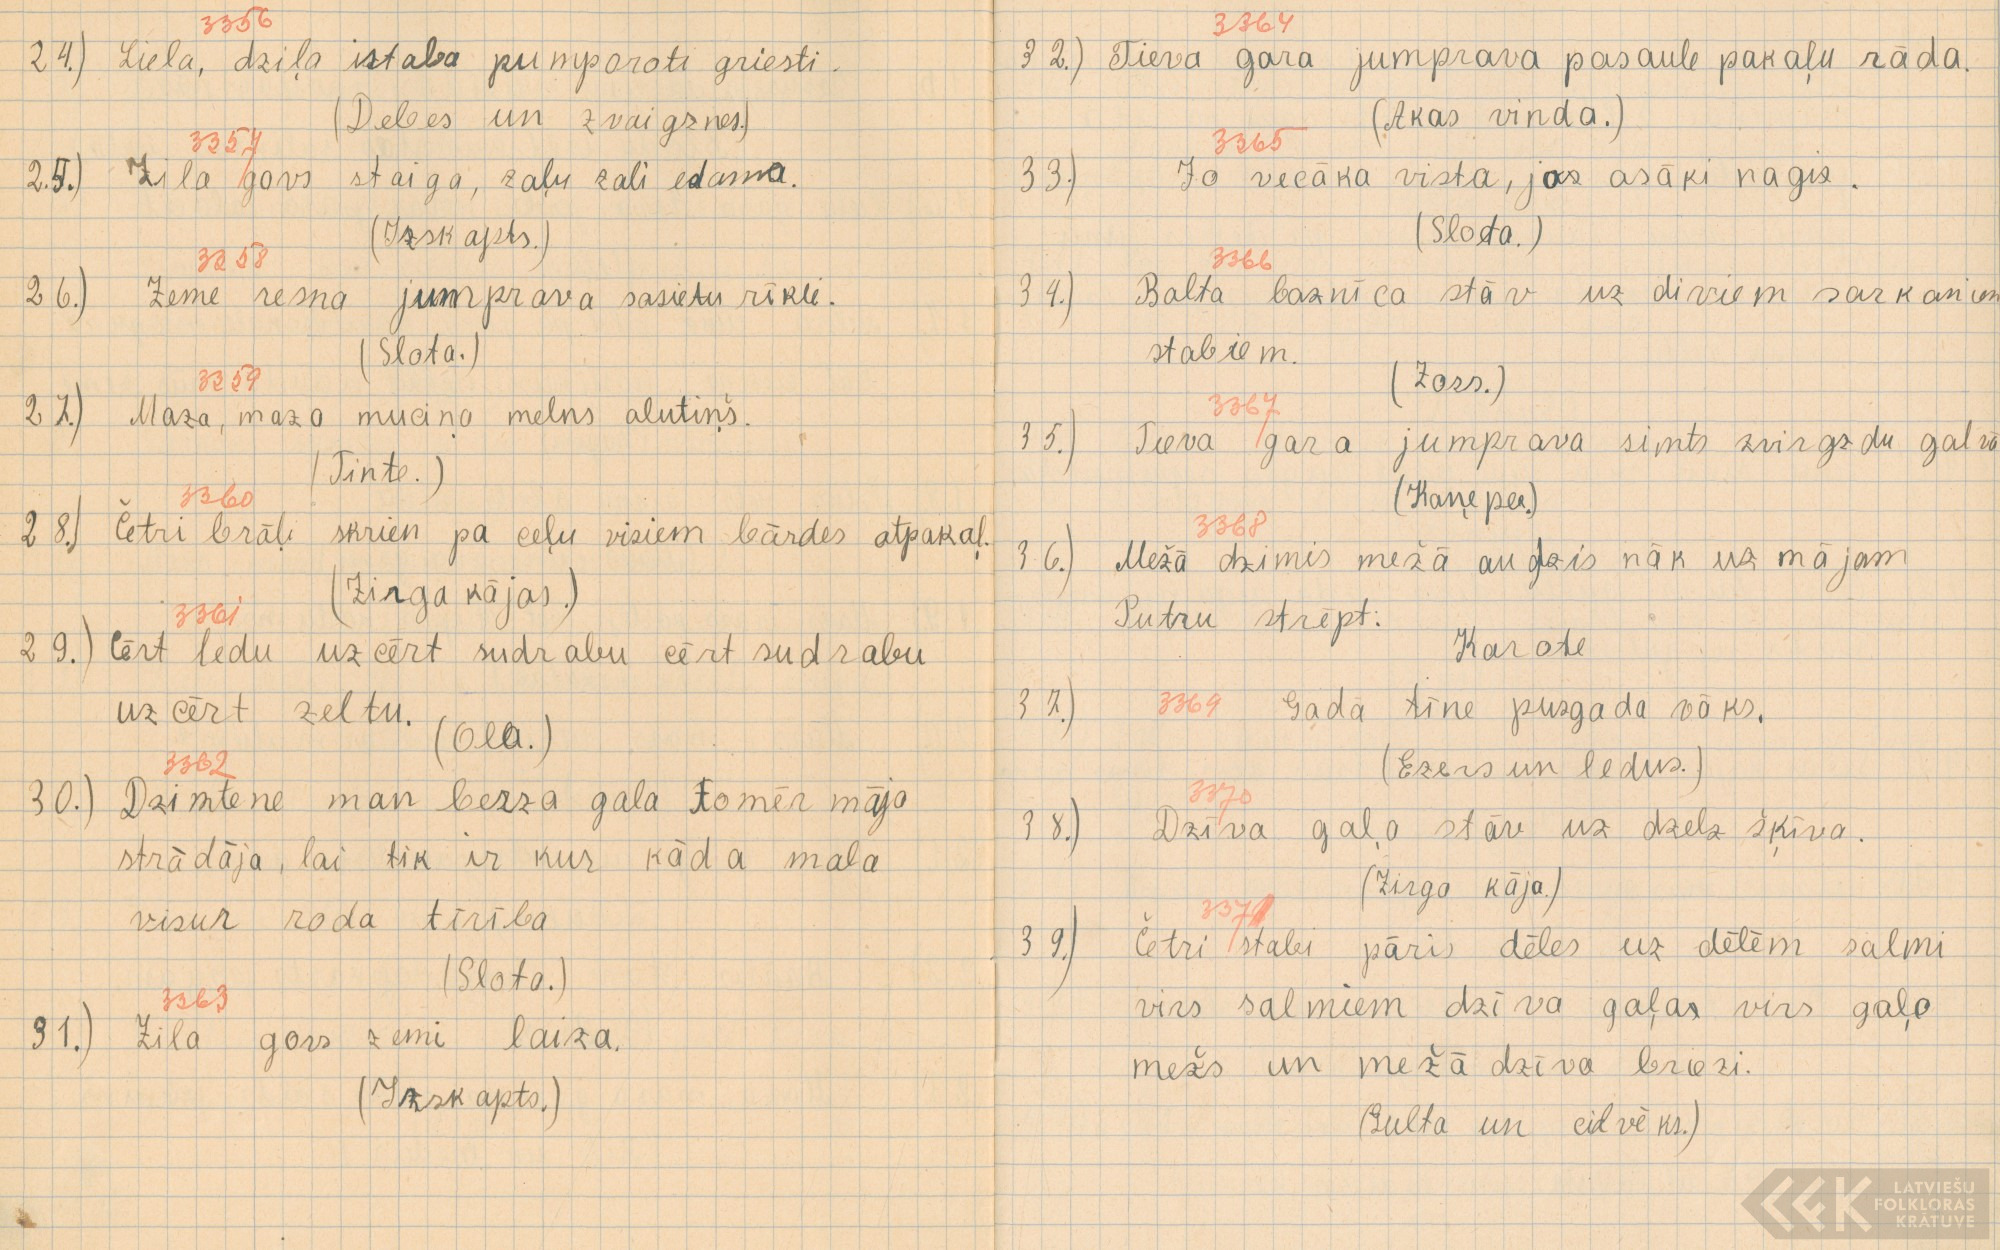 3356
24.) Liela, dziļa istaba pumporoti griesti.
(Debes un zvaigznes.)
3357
25.) Zila govs staiga, zaļu zali edama.
(Izskapts.)
3358
26.) Zeme resna jumprava sasietu rīkli.
(Slota.)
3359
27.) Maza, maza muciņa melns alutiņš.
(Tinte.)
3360
28.) Četri brāļi skrien pa ceļu visiem bārdes atpakaļ.
(Zirga kājas.)
3361
29.) Cērt ledu uzcērt sudrabu cērt sudrabu
uzcērt zeltu.
(Ola.)
3362
30.) Dzimtene man bezza gala tomēr māja
strādāja, lai tik ir kur kāda mala
visur roda tīrība
(Slota.)
3363
31.) Zila govs zemi laiza.
(Izskapts.)
3364
32.) Tieva gara jumprava pasaule pakaļu rāda.
(Akas vinda.)
3365
33.) Jo vecāka vista, jos asāki nagis.
(Slota.)
3366
34.) Balta baznīca stāv uz diviem sarkaniem
stabiem.
(Zoss.)
3367
35.) Tieva gara jumprava simts zvirgzdu galvā
(Kaņepes.)
3368
36.) Mežā dzimis mežā audzis nāk uz mājam
Putru strēpt:
Karote
37.) 3369 Gada tīne pusgada vāks.
(Ezers un ledus.)
3370
38.) Dzīva gaļa stāv uz dzelz šķīva.
(Zirga kāja.)
3371
39.) Četri stabi pāris dēles uz dēlēm salmi
virs salmiem dzīva gaļas virs gaļa
mežs un mežā dzīva briezi.
(Gulta un cilvēks.)
LATVIEŠU
FOLKLORAS
KRĀTUVE